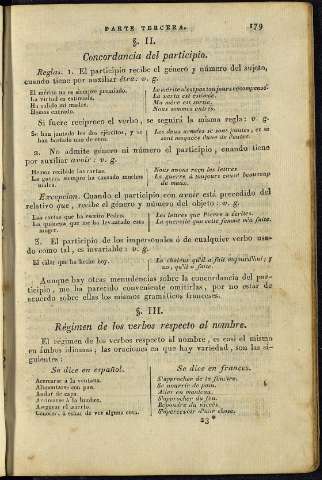 PARTE TERCERA. 179
§. II.
Concordancia del participio.
Reglas. 1. El participio recibe el género y número del sujeto,
cuando tiene por auxiliar être: v. g.
El mérito no es siempre premiado. Le mérite n'est pas toujours récompensé.
La virtud es estimada. La vertu est estimée.
Ha salido mi madre. Ma mère est sortie.
Hemos entrado. Nous sommes entrés.
Si fuere recíproco el verbo, se seguirá la misma regla: v. g.
Se han juntado los dos ejércitos, y se Les deux armées se sont jointes, et se
han burlado una de otra. sont moquées l'une de l'autre.
2. No admite género ni número el participio, cuando tiene
por auxiliar avoir: v. g.
Hemos recibido las cartas. Nous avons reçu les lettres.
La guerra siempre ha causado muchos La guerre a toujours causé beaucoup
males. de maux.
Excepcion. Cuando el participio con avoir está precedido del
relativo que, recibe el género y número del objeto: v. g.
Las cartas que ha escrito Pedro. Les lettres que Pierre a écrites.
La quimera que me ha levantado esta La querelle que cette femme m'a faite.
muger.
3. El participio de los impersonales ó de cualquier verbo usa-
do como tal, es invariable: v. g.
El calor que ha hecho hoy. La chaleur qu'il a fait aujourd'hui; y
no, qu'il a faite.
Aunque hay otras menudencias sobre la concordancia del par-
ticipio, me ha parecido conveniente omitirlas, por no estar de
acuerdo sobre ellas los mismos gramáticos franceses.
§. III.
Régimen de los verbos respecto al nombre.
El régimen de los verbos respecto al nombre, es casi el mismo
en ámbos idiomas; las oraciones en que hay variedad, son las si-
guientes:
Se dice en español. Se dice en frances.
Acercarse á la ventana. S'approcher de la fenêtre.
Alimentarse con pan. Se nourrir de pain.
Andar de capa. Aller en manteau.
Arrimarse á la lumbre. S'approcher du feu.
Asegurar el acierto. Répondre du succès.
Conocer, ó echar de ver alguna cosa. S'apercevoir d'une chose.
23*